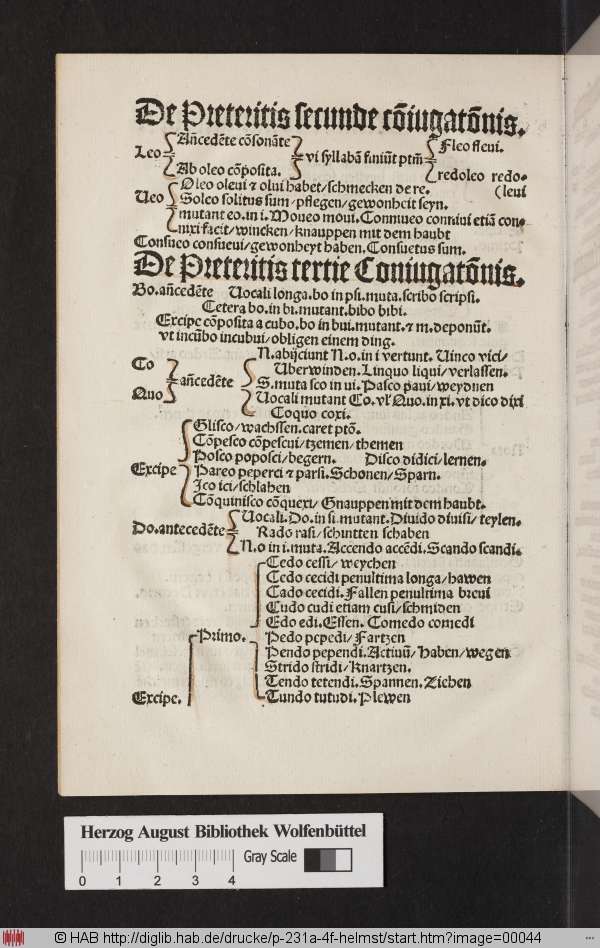 De Preteritis secunde cõiugatõnis.
Leo
Añcedẽte cõsonãte
Ab oleo cõposita.
vi syllabã finiũt ptm̃
Fleo flevi.
redoleo redo-
(levi
Ueo
Oleo olevi ⁊ olui habet/schmecken de re.
Soleo solitus sum/pflegen/gewonheit seyn.
mutant eo.in.i.Moueo movi.Connueo connivi etiã con-
nixi facit/wincken/knauppen mit dem haubt
Consueo consuevi/gewonheyt haben.Consuetus sum.
De Preteritis tertie Coniugatõnis.
Bo.añcedẽte Uocali longa.bo in psi.muta.scribo scripsi.
Cetera bo.in bi.mutant.bibo bibi.
Excipe cõposita a cubo.bo in bui.mutant.⁊ m.deponũt.
vt incũbo incubui/obligen einem ding.
Co
Quo
añcedẽte
N.abijciunt N.o.in i vertunt.Uinco vici/
Uberwinden.Linquo liqui/verlassen.
S.muta sco in ui.Pasco pavi/weydnen
Uocali mutant Co.vl' Quo.in xi.vt dico dixi
Coquo coxi.
Excipe
Glisco/wachssen.caret ptõ.
Cõpesco cõpescui/tzemen/themen
Posco poposci/begern. Disco didici/lernen.
Pareo peperci ⁊ parsi.Schonen/Sparn.
Ico ici/schlahen
Cõquinisco cõquexi/Gnauppen mit dem haubt.
Do.antecedẽte
Uocali.Do.in si.mutant.Divido divisi/teylen.
Rado rasi/schintten schaben
N.o in i.muta.Accendo accẽdi.Scando scandi.
Excipe.
Primo.
Cedo cessi/weychen
Cedo cecidi penultima longa/hawen
Cado cecidi.Fallen penultima brevi
Cudo cudi etiam cusi/schmiden
Edo edi.Essen. Comedo comedi
Pedo pepedi/Fartzen
Pendo pependi.Activũ/haben/wegen
Strido stridi/knartzen.
Tendo tetendi.Spannen.Ziehen
Tundo tutudi.Plewen
Herzog August Bibliothek Wolfenbüttel
0 1 2 3 4
Gray Scale
© HAB http://diglib.hab.de/drucke/p-231a-4f-helmst/start.htm?image=00044